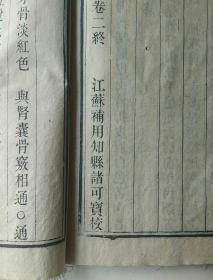 卷二終 江蘇補用知縣諸可寶校
骨淡紅色 與腎囊骨竅相通○通